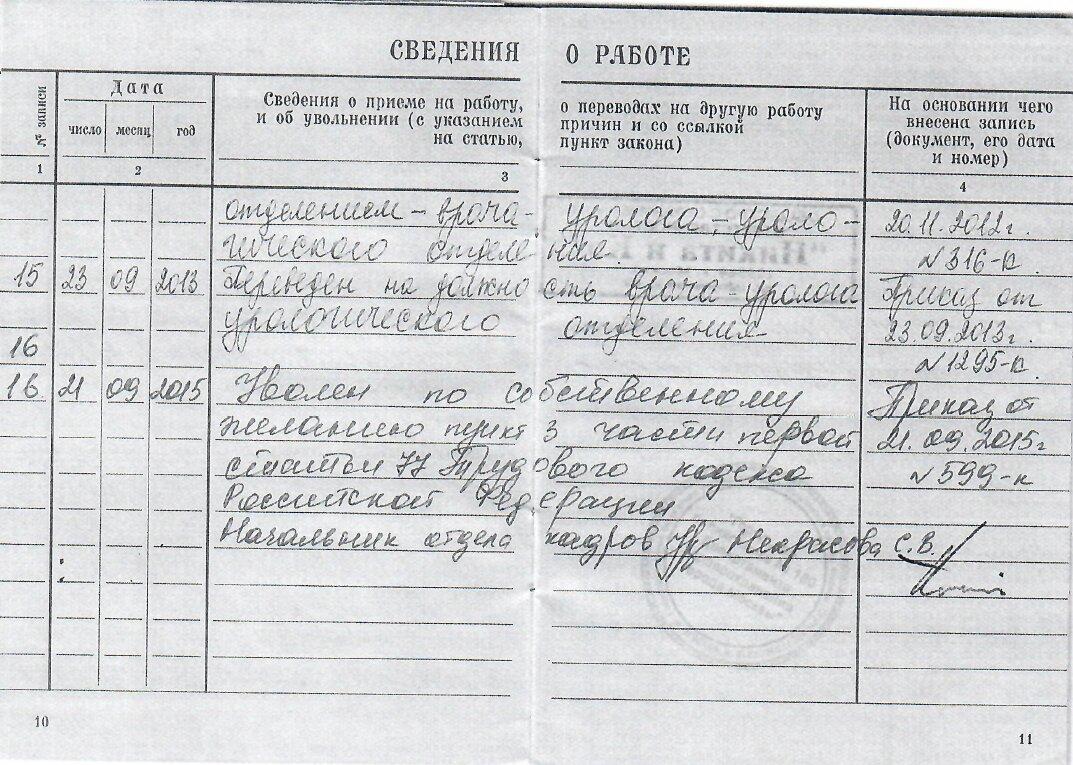 СВЕДЕНИЯ О РАБОТЕ
№ записи
Дата
число месяц год
Сведения о приеме на работу,
и об увольнении (с указанием
на статью,
о переводах на другую работу
причин и со ссылкой
пункт закона)
На основании чего
внесена запись
(документ, его дата
и номер)
1 2 3 4
отделением – врача- уролога – уроло- 20.11.2012г.
гического отделения №316-к.
15 23 09 2013 Переведен на должность врача-уролога Приказ от
урологического отделения 23.09.2013г.
16 №1295-к.
16 21 09 2015 Уволен по собственному Приказ от
желанию пункт 3 части первой 21.09.2015г
статьи 77 Трудового кодекса №599-к
Российской Федерации
Начальник отдела кадров Некрасова С.В.
10
11